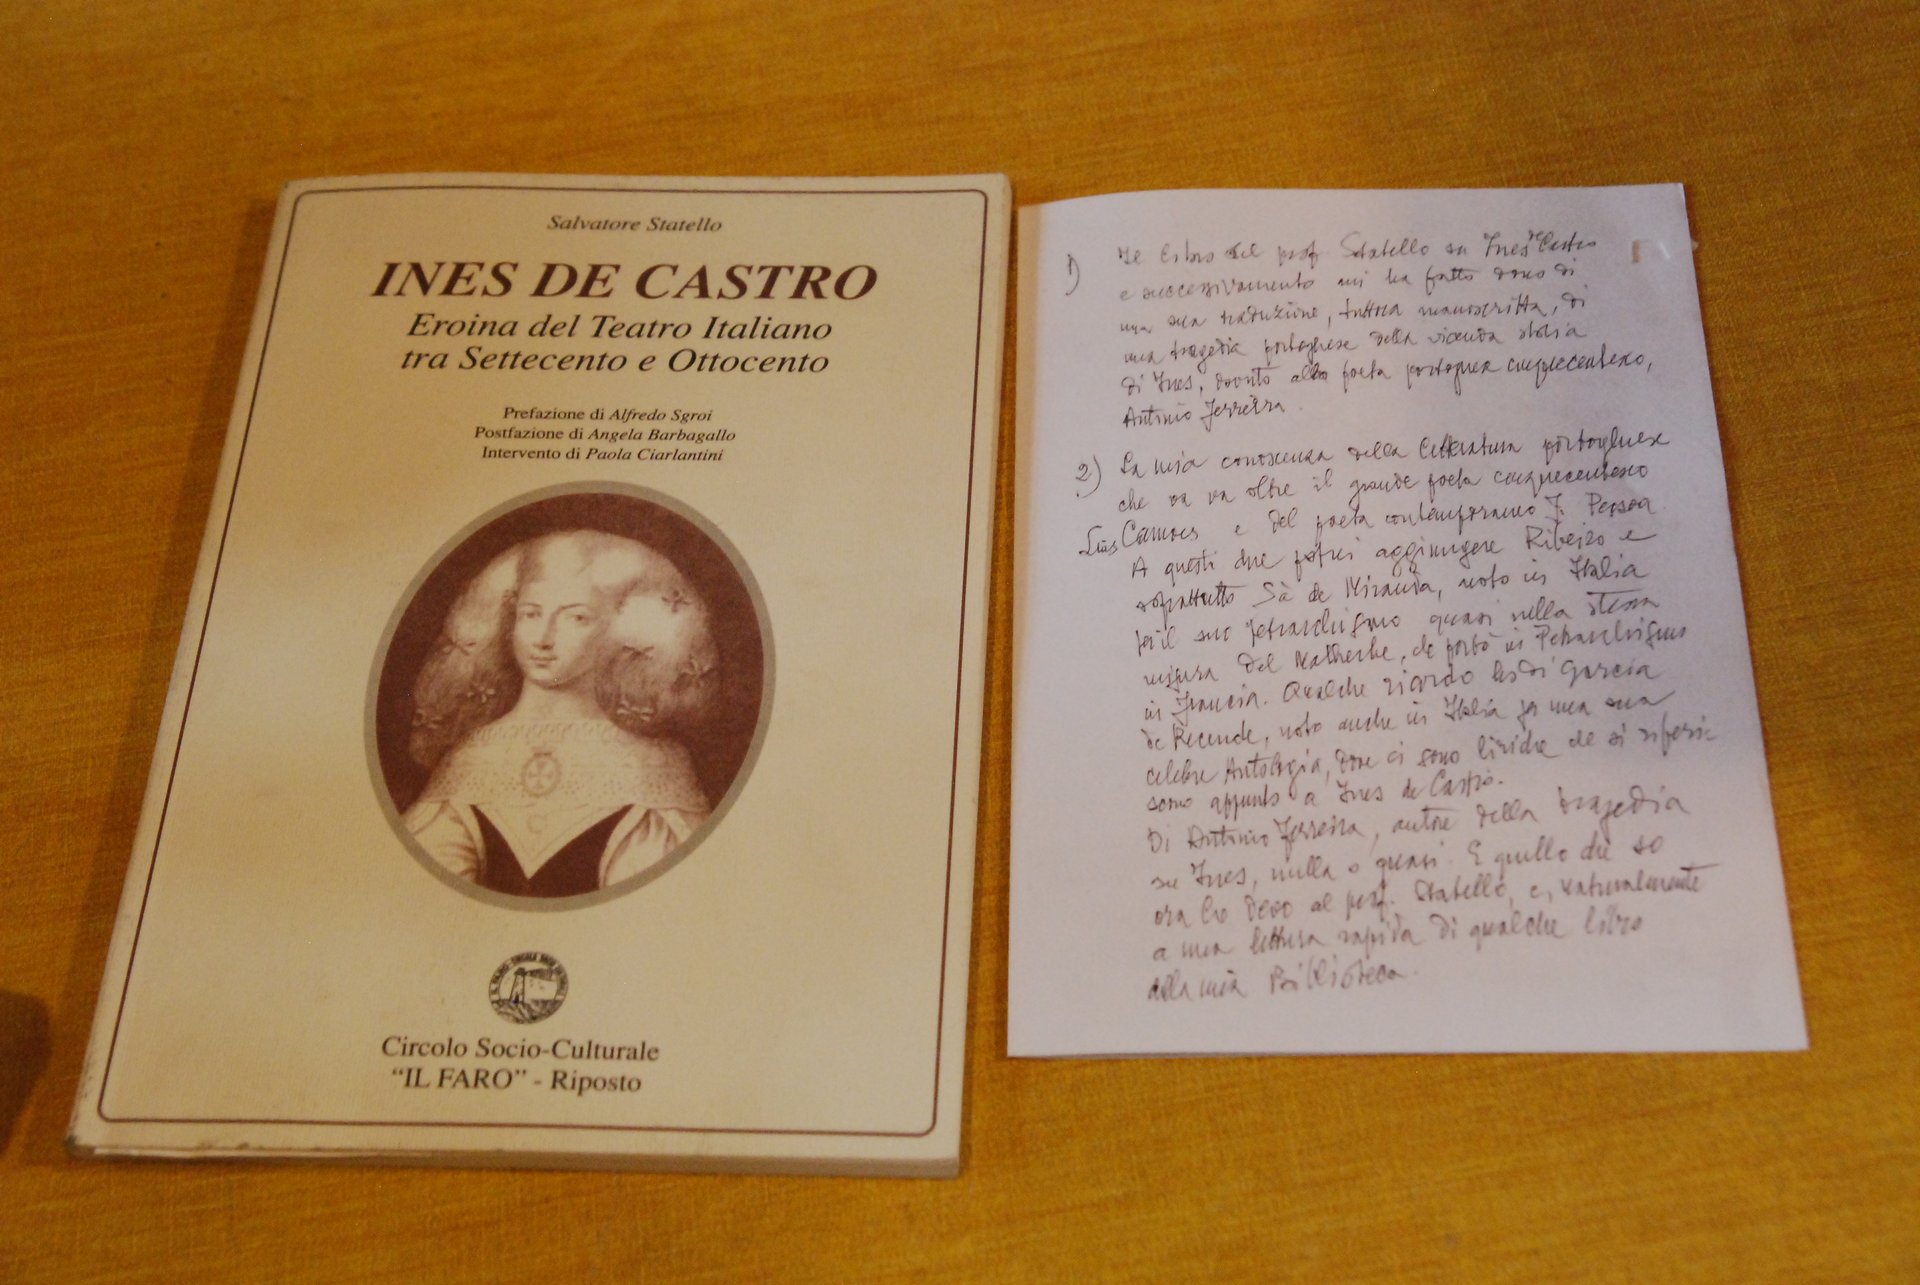 Salvatore Statello
INES DE CASTRO
Eroina del Teatro Italiano
tra Settecento e Ottocento
Prefazione di Alfredo Sgroi
Postfazione di Angela Barbagallo
Intervento di Paola Ciarlantini
Circolo Socio-Culturale
“IL FARO” - Riposto
1) Il libro del prof. Statello su Ines de Castro
e successivamento mi ha fatto dono di
una sua traduzione, tuttora manoscritta, di
una tragedia portoghese della vicenda storia
di Ines, dovuto alla poeta portoghese cinquecentesco,
Antonio Ferreira.
2) La mia conoscenza della letteratura portoghese
che va va oltre il grande poeta cinquecentesco
Luis Camoes e del poeta contemporaneo F. Pessoa.
A questi due potrei aggiungere Ribeiro e
soprattutto Sà de Miranda, noto in Italia
per il suo petrarchismo quasi nella stessa
misura del Malherbe, che portò in Petrarchismo
in Francia. Qualche ricordo di Garcia
de Resende, noto anche in Italia per una sua
celebre Antologia, dove ci sono liriche che si riferi-
scono appunto a Ines de Castro.
Di Antonio Ferreira, autore della tragedia
su Ines, nulla o quasi. E quello che so
ora lo devo al prof. Statello, e, naturalmente
a una lettura rapida di qualche libro
della mia Biblioteca.